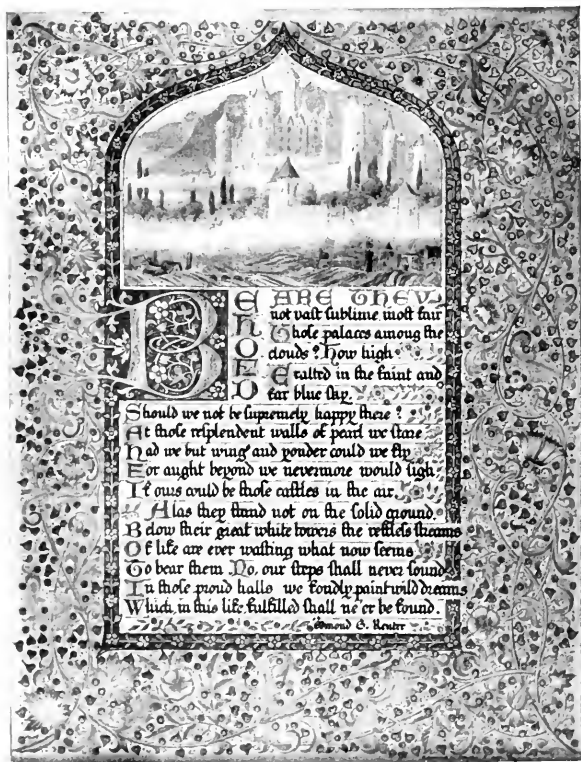 BEHOLD ARE THEY
not vast sublime, most fair
Those palaces among the
clouds? How high
Exalted in the faint and
far blue sky.
Should we not be supremely happy there?
At those resplendent walls of pearl we stare
Had we but wings and yonder could we fly
For aught beyond we nevermore would sigh
If ours could be those castles in the air.
Alas they stand not on the solid ground.
Below their great white towers the restless streams
Of life are ever wasting what now seems
To bear them. No, our steps shall never sound
In those proud halls we fondly paint wild dreams
Which, in this life fulfilled shall ne'er be found.
Edmond G. Reuter